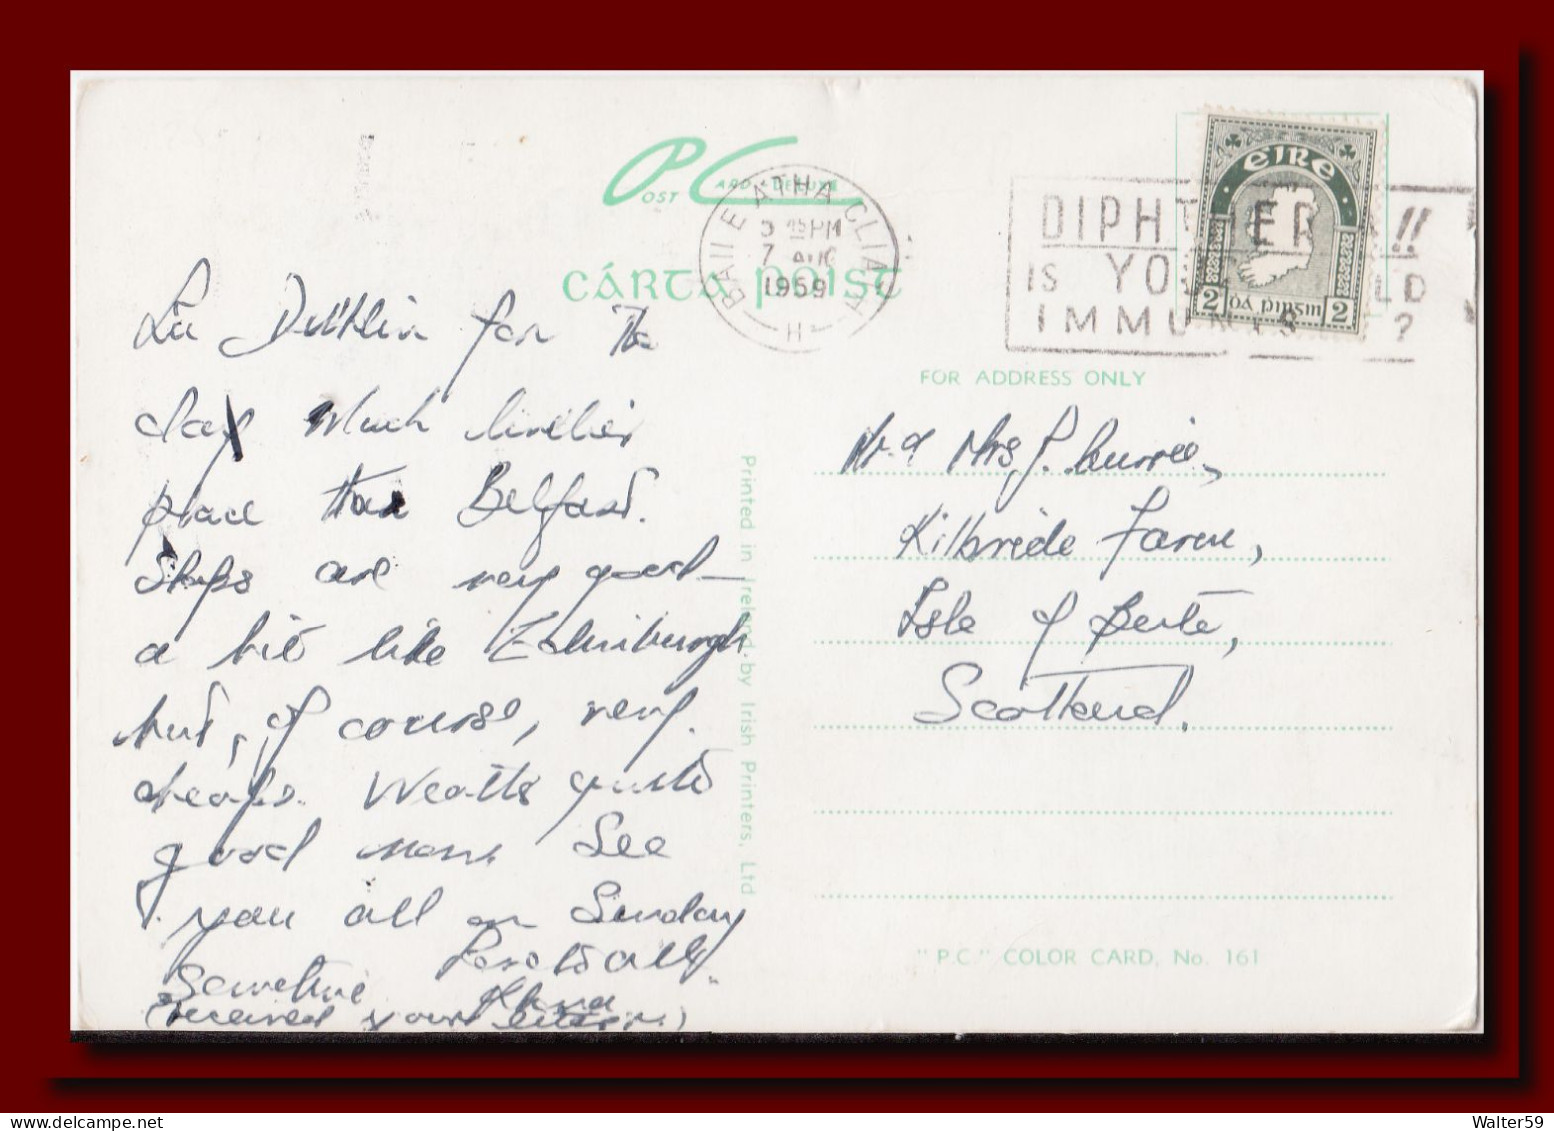 POST CARD "DELUXE"
CÁRTA POIST
BAILE ÁTHA CLIATH
5 15 PM
7 AUG
1959
H
DIPHTHER !!
IS YO LD
IMMUNIS ?
EIRE
2 Dá pingin 2
In Dublin for the
day Much livelier
place than Belfast.
Shops are very good
a bit like Edinburgh
but, of course, very
cheap. Weather quite
good now. See
you all on Sunday
Sometime
(received your letter)
FOR ADDRESS ONLY
Mr & Mrs J. Currie,
Kilbride Farm,
Isle of Bute,
Scotland.
Printed in Ireland by Irish Printers, Ltd
"P.C." COLOR CARD, No. 161
Walter59